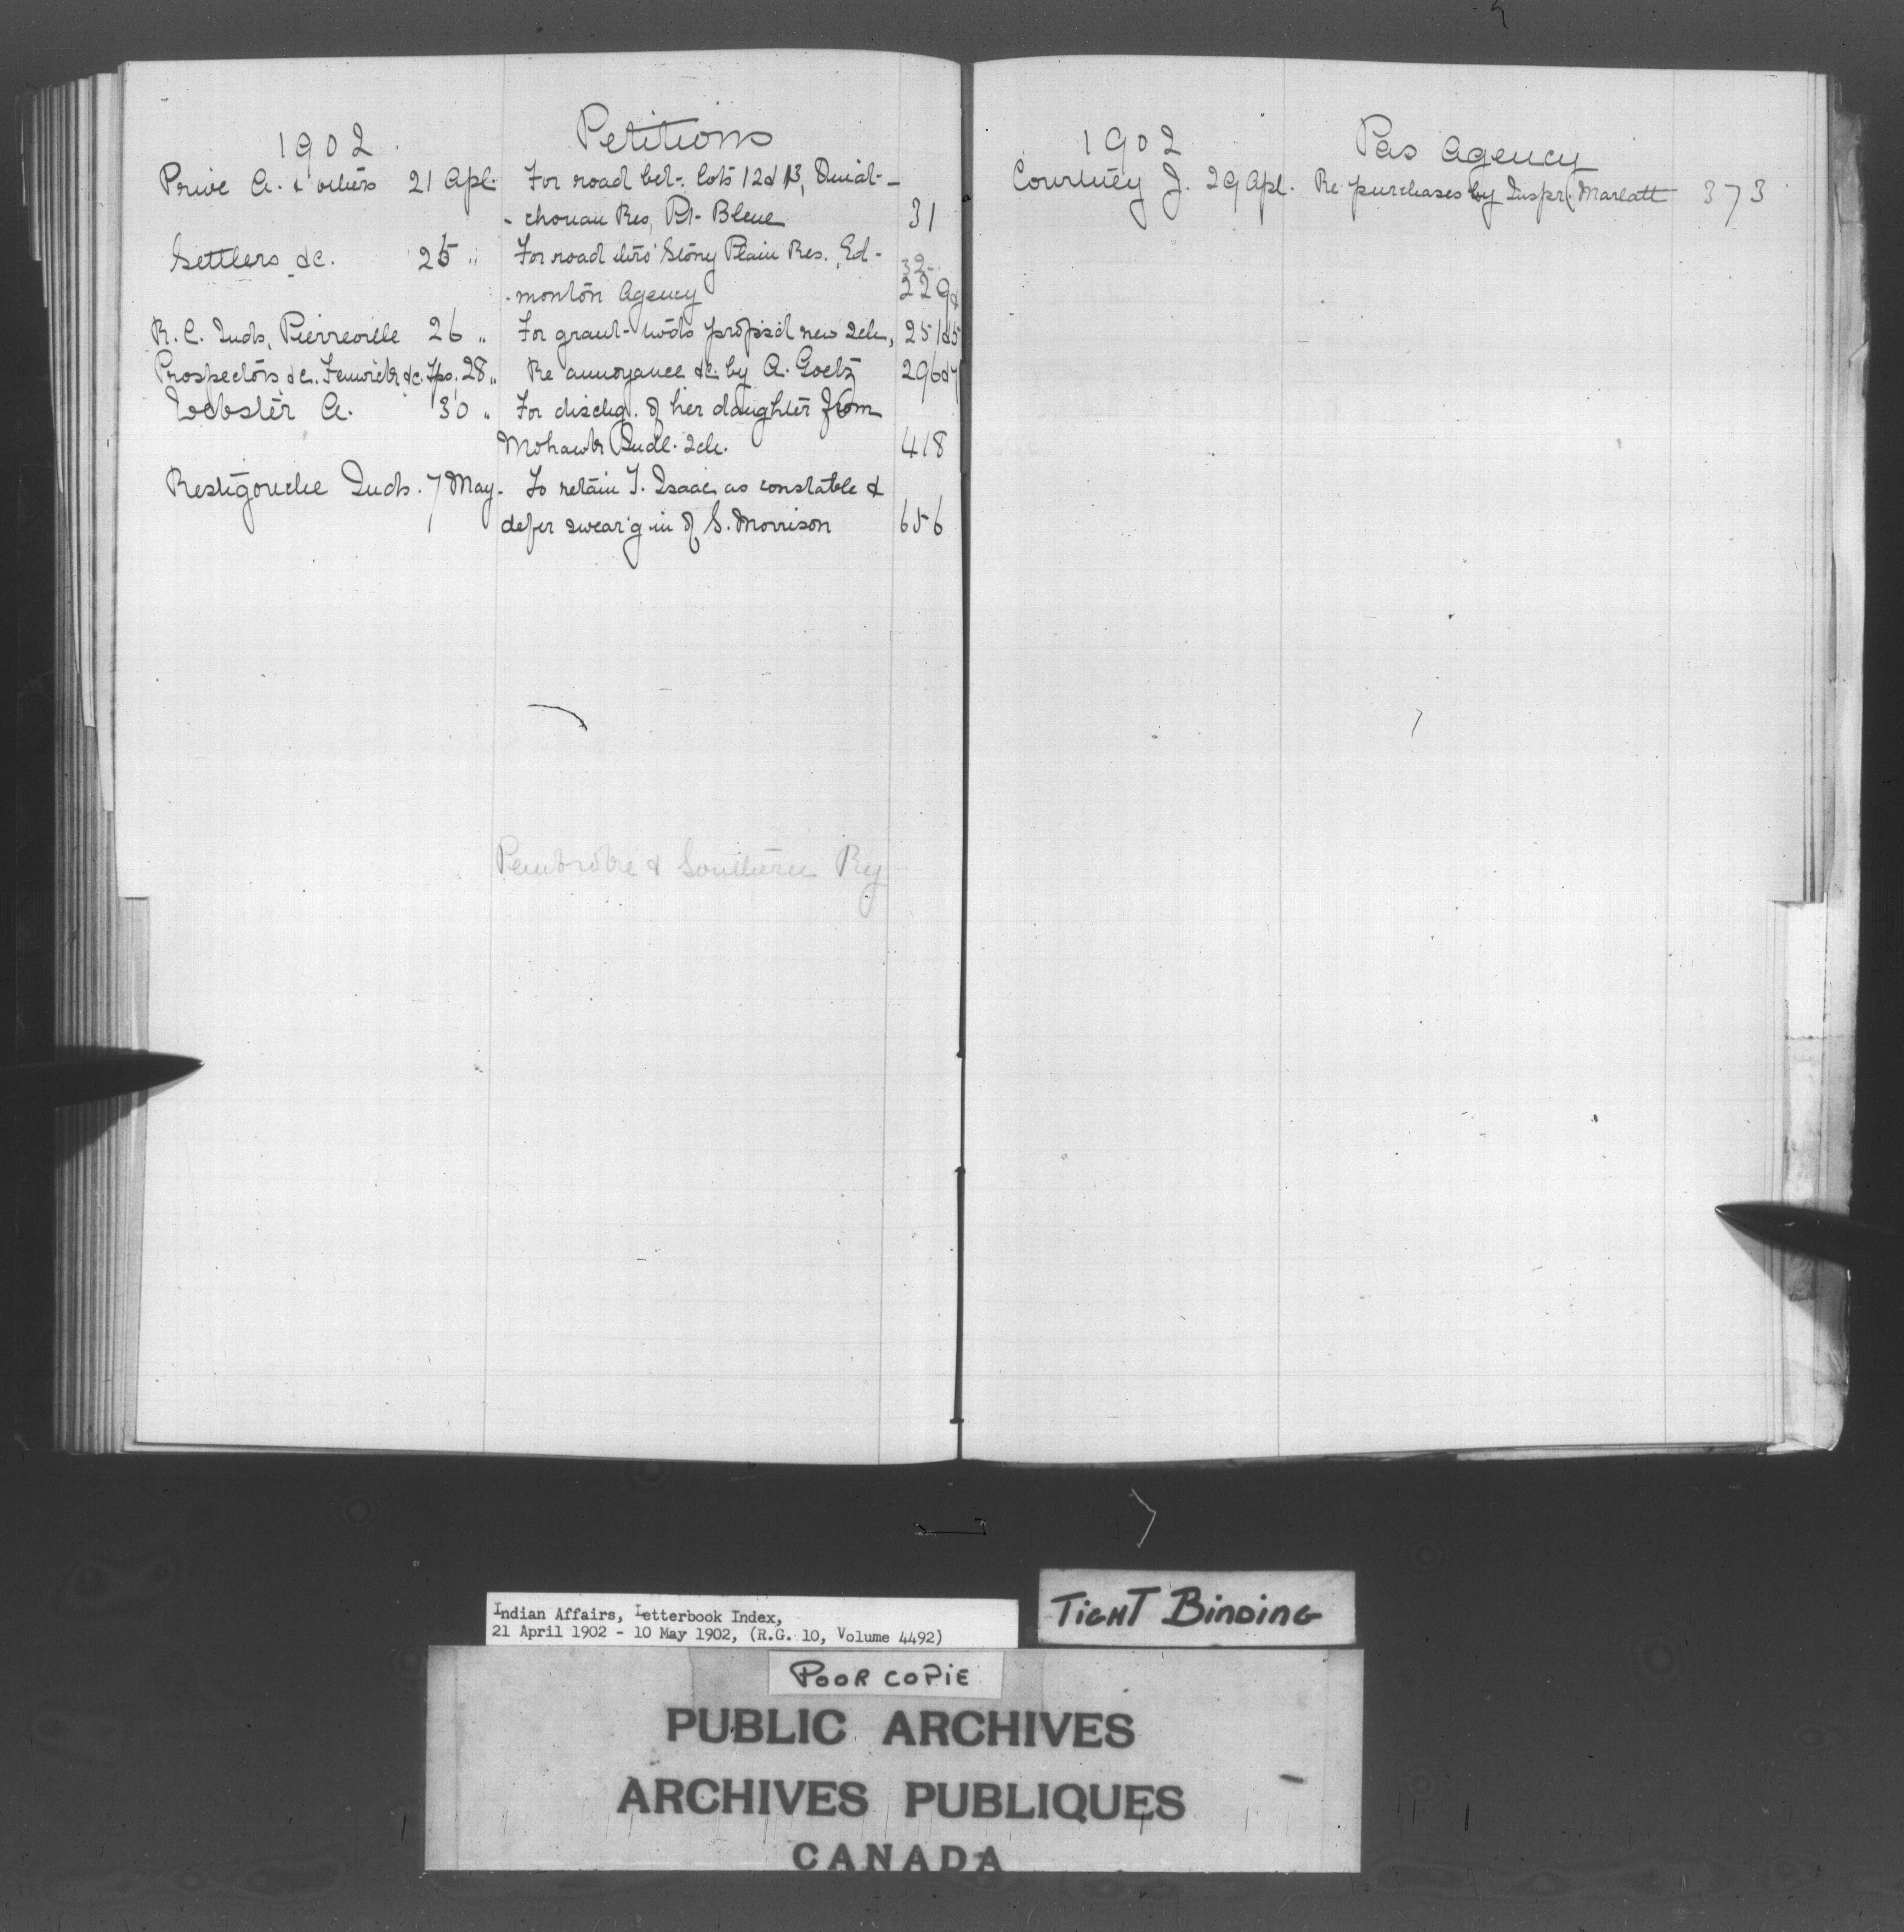 1902 Petitions
Privé A. & others 21 Apl. For road bet. lots 12 & 13, Ouiat-
-chouan Res, Pt. Bleue 31
Settlers &c. 25 " For road thro' Stony Plain Res., Ed- 32-
-monton Agency 229&
R. C. Inds, Pierreville 26 " For grant twds propsd new sch, 251&5
Prospectors &c. Fenwick &c. Tps. 28 " Re annoyance &c. by A. Goetz 296&7
Webster A. 30 " For dischg. of her daughter from
Mohawk Indl. Sch. 418
Restigouche Inds. 7 May. To retain T. Isaac as constable &
defer swear'g in of S. Morrison 656
Pembroke & Southern Ry
1902 Pas Agency
Courtney J. 29 Apl. Re purchases by Inspr. Marlatt 373
Indian Affairs, Letterbook Index,
21 April 1902 - 10 May 1902, (R.G. 10, Volume 4492)
TIGHT BINDING
POOR COPIE
PUBLIC ARCHIVES
ARCHIVES PUBLIQUES
CANADA